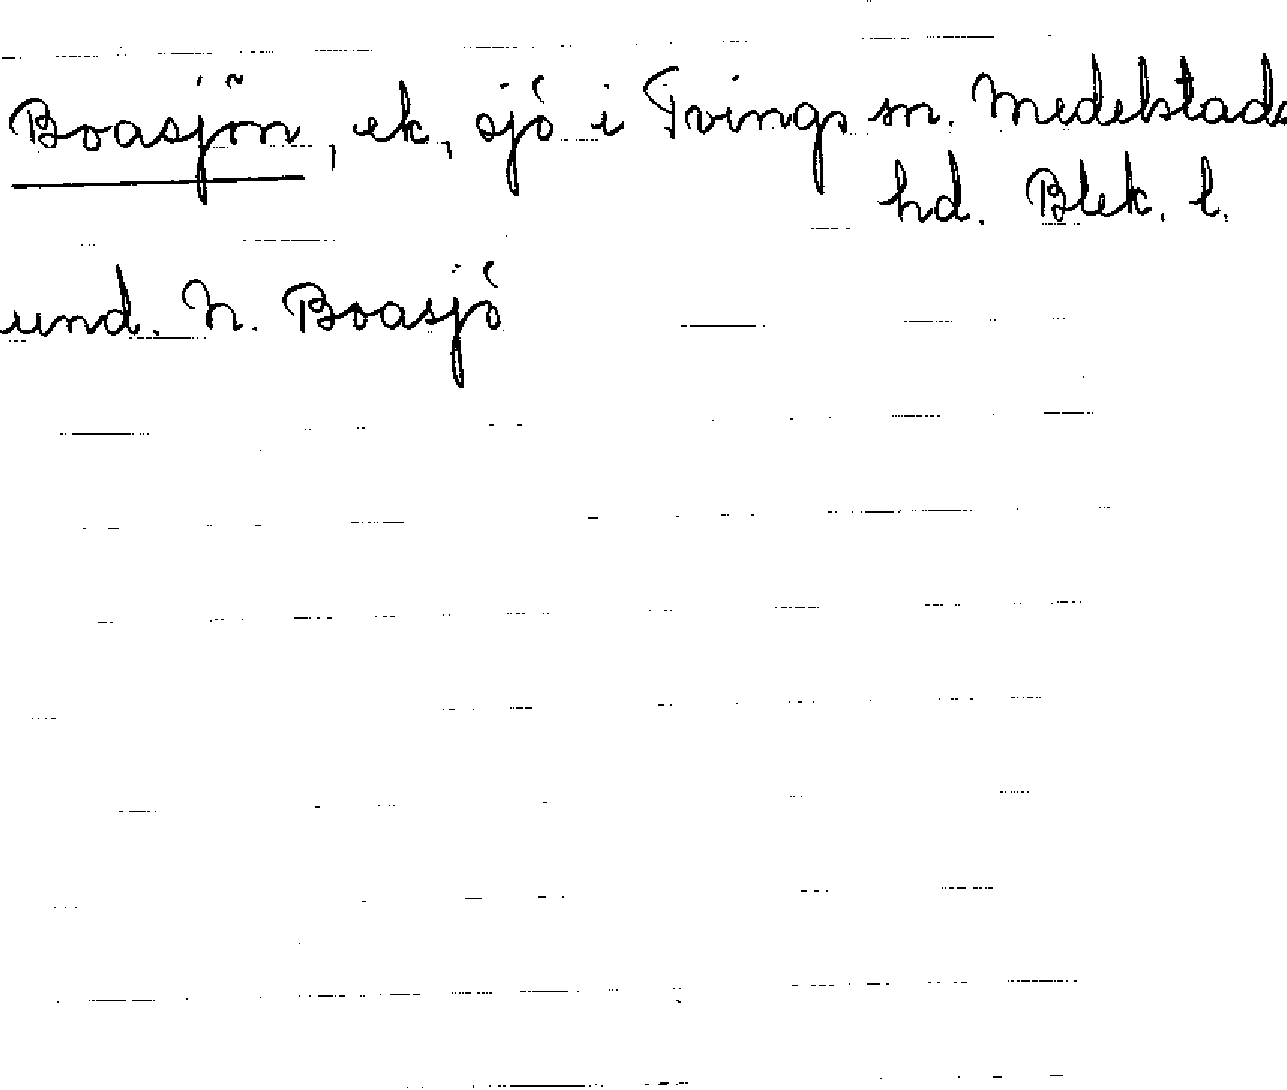 Boasjön, ek, sjö i Tvings sn. Medelstads
hd. Blek. l.
und. N. Boasjö